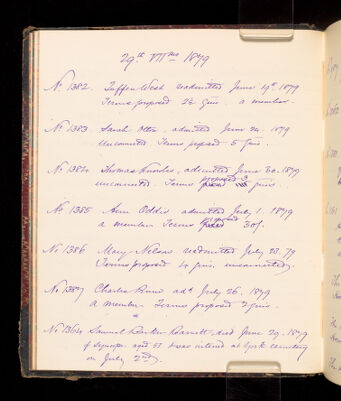 29th VII mo 1879
No 1382. Tuffen West readmitted June 19th 1879
Terms proposed 2½ gns. a member.
No 1383. Sarah Otter, admitted June 24. 1879
Unconnected Terms proposed 5 gns.
No 1384 Thomas Knowles, admitted June 30. 1879
unconnected. Terms proposed 3 gns.
No 1385 Ann Oddie admitted July 1. 1879
a member Terms proposed 30/.
No 1386 Mary Nelson readmitted July 23. 79
Terms proposed 4 gns. unconnected
No 1387 Charles adt July 26. 1879
a member Terms proposed 2 gns.
No 1364 Samuel Barnett, died June 29. 1879
of Syncope aged 57 & was interred at York cemetery
on July 2nd.